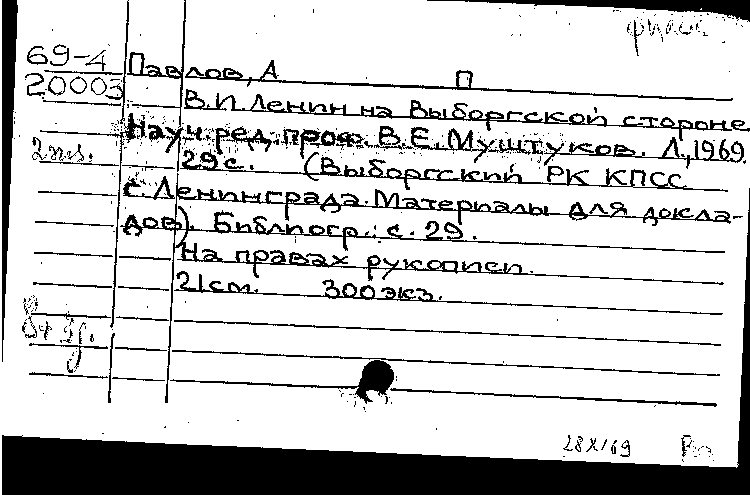 69-4 Павлов, А П
20003
В.И.Ленин на Выборгской стороне
Науч. ред. проф. В.Е. Муштуков. Л., 1969
29с. (Выборгский РК КПСС
г. Ленинграда. Материалы для докла-
дов). Библиогр.: с. 29.
На правах рукописи.
21см. 300 экз.
28 X/69